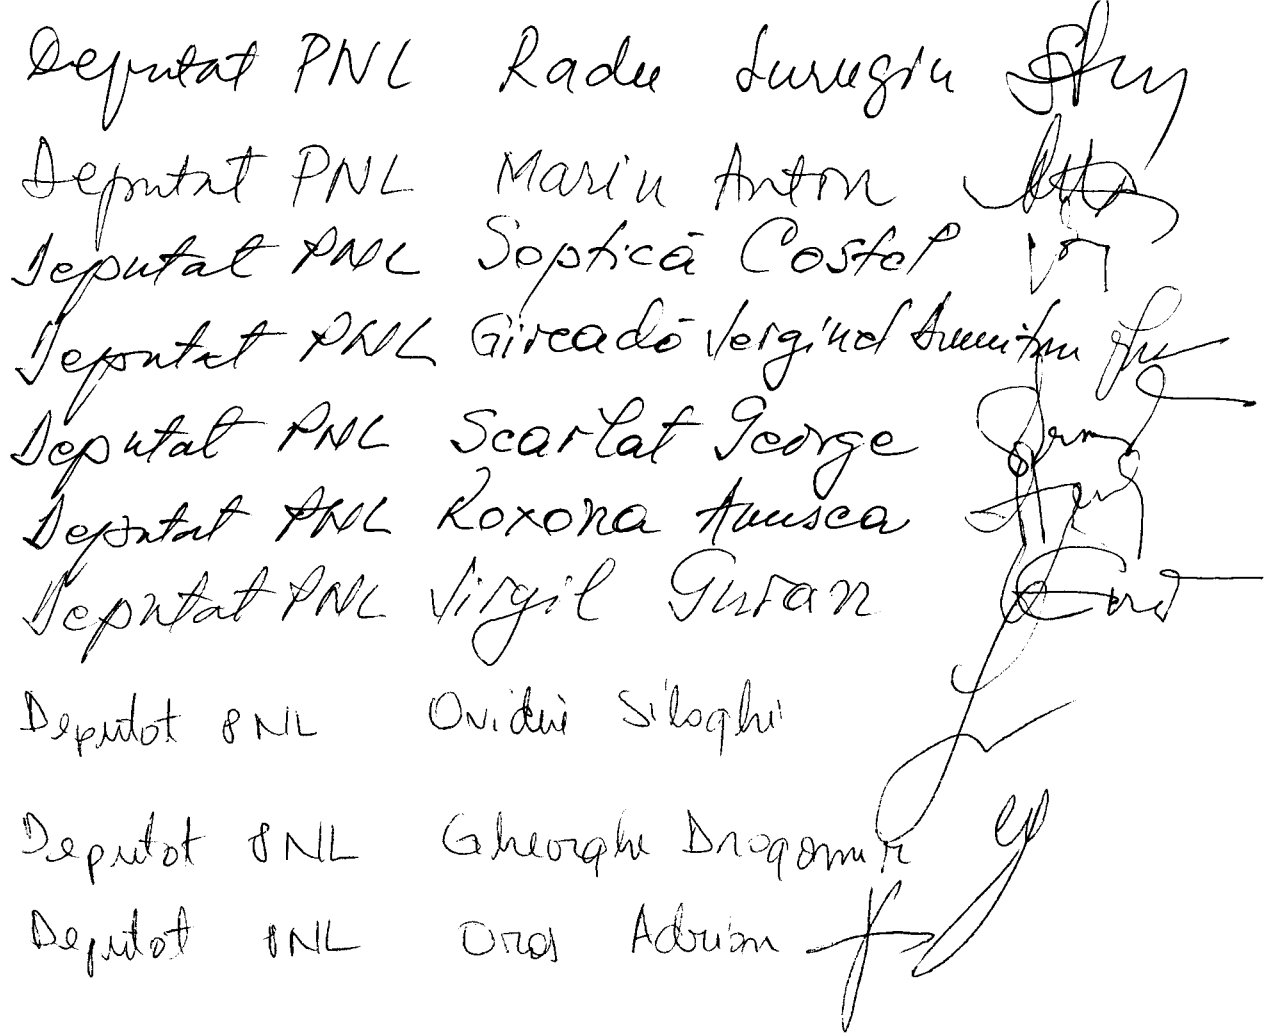 Deputat PNL Radu Surugiu
Deputat PNL Marin Anton
Deputat PNL Soptică Costel
Deputat PNL Gireadă Verginel Dumitru
Deputat PNL Scarlat George
Deputat PNL Roxana Anusca
Deputat PNL Virgil Guran
Deputat PNL Ovidiu Silaghi
Deputat PNL Gheorghe Dragomir
Deputat PNL Oros Adrian